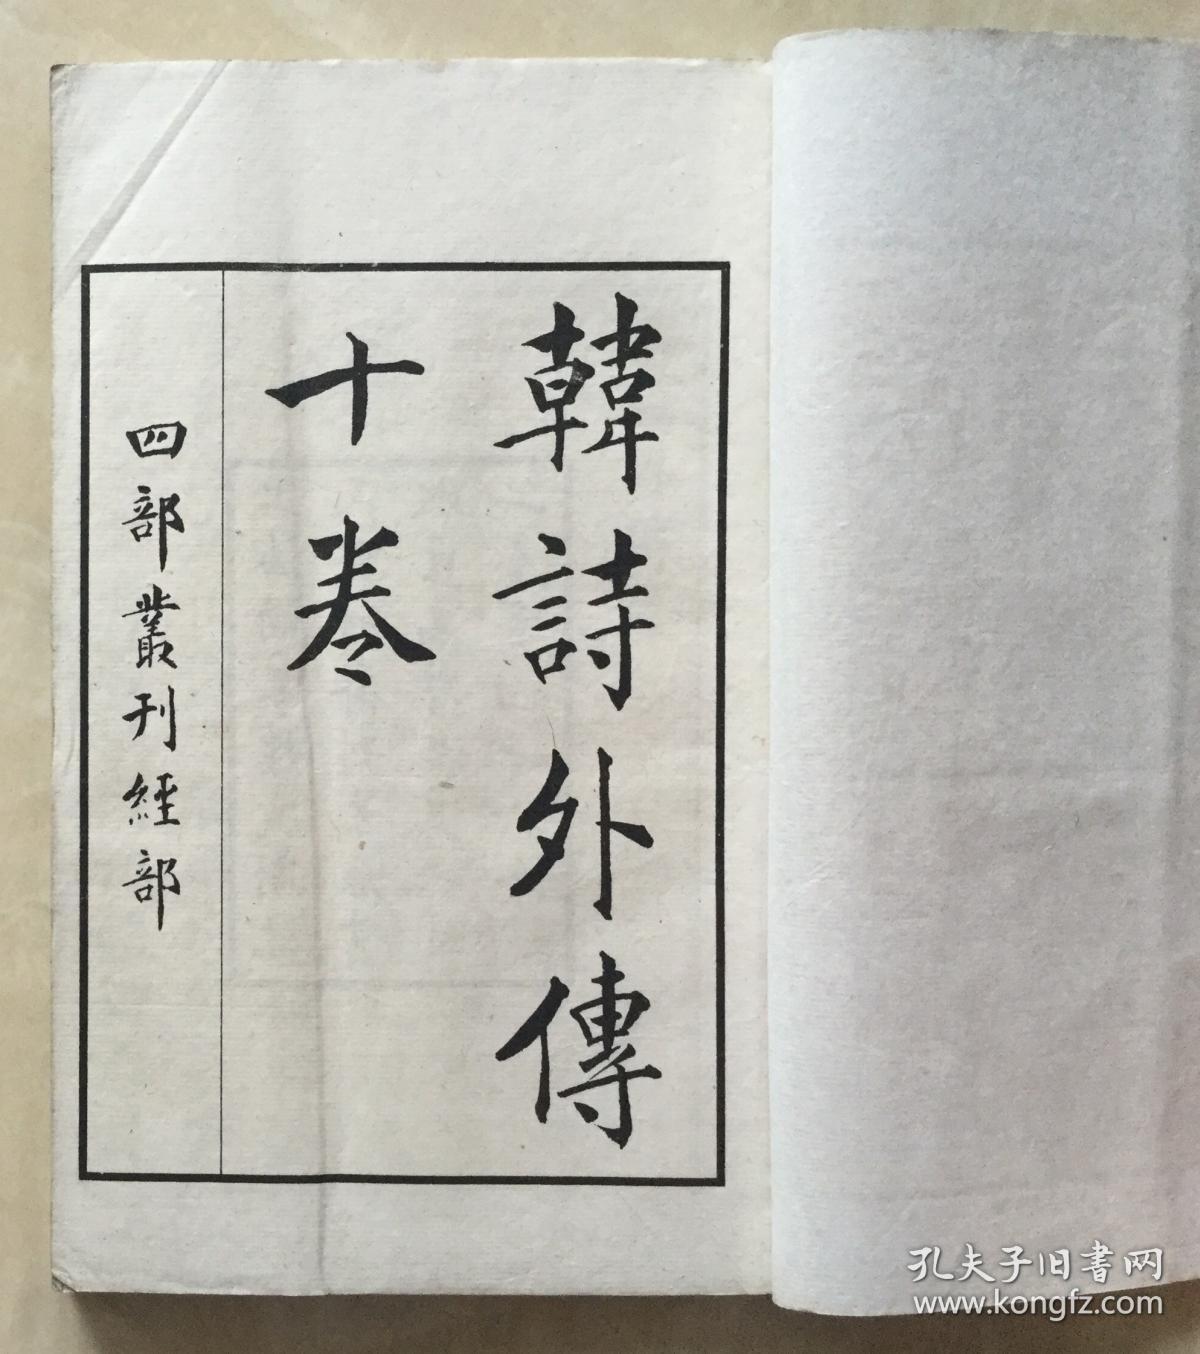 韓詩外傳
十卷
四部叢刊經部
孔夫子旧書网
www.kongfz.com